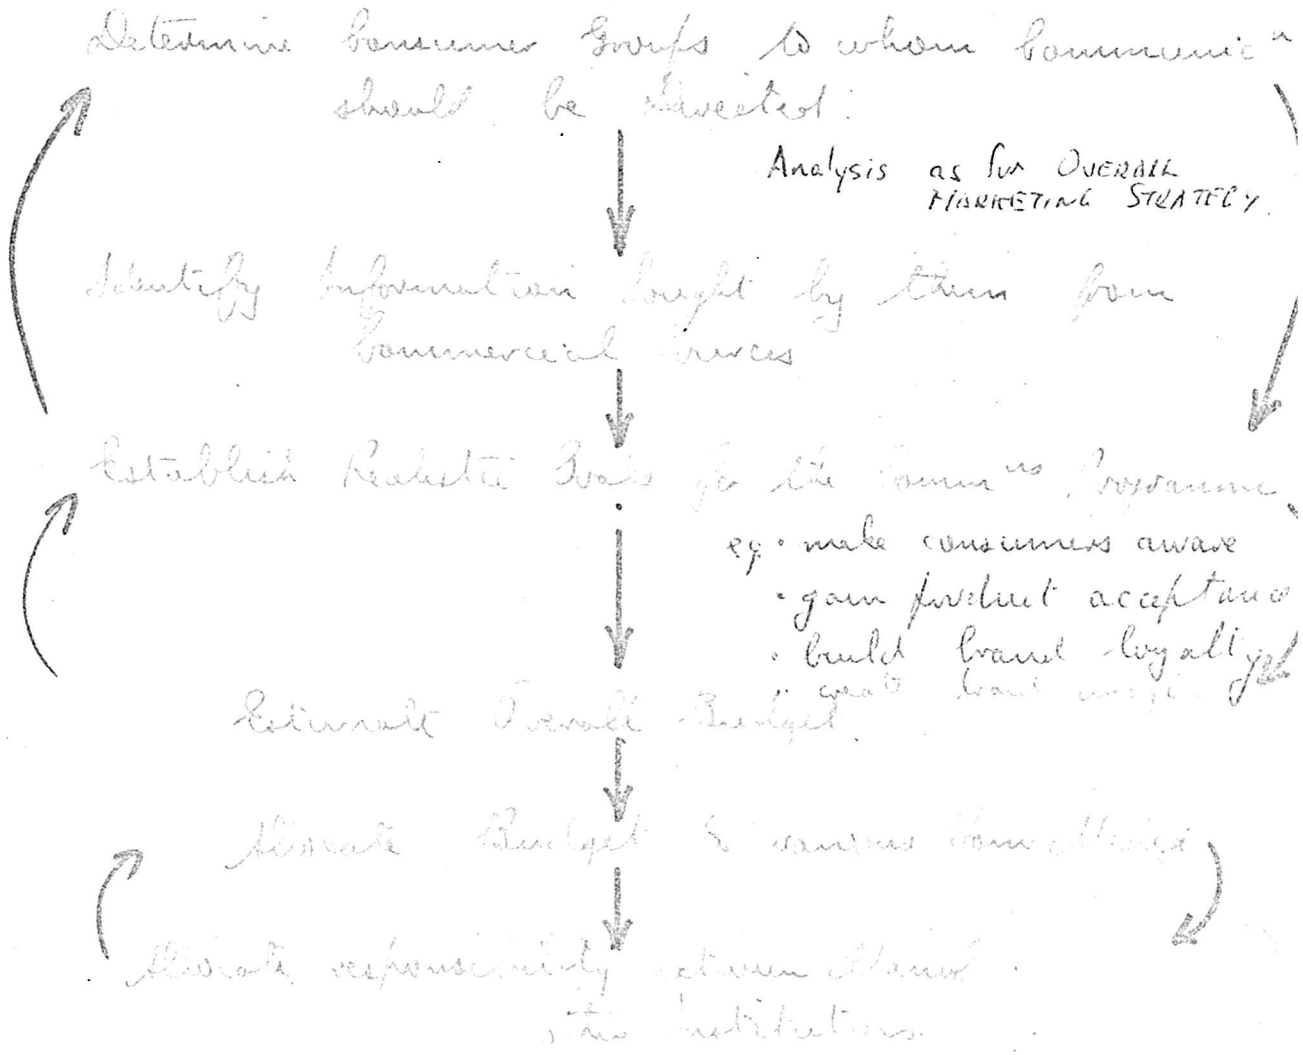 Determine Consumer Groups to whom Communicⁿ
should be directed.
Analysis as for OVERALL
MARKETING STRATEGY.
Identify Information Sought by them from
Commercial Sources
Establish Realistic Goals for the Commⁿˢ Programme
eg • make consumers aware
• gain product acceptance
• build brand loyalty
• create brand
Estimate Overall Budget.
Allocate Budget to various
Allocate responsibility between
Institutions.